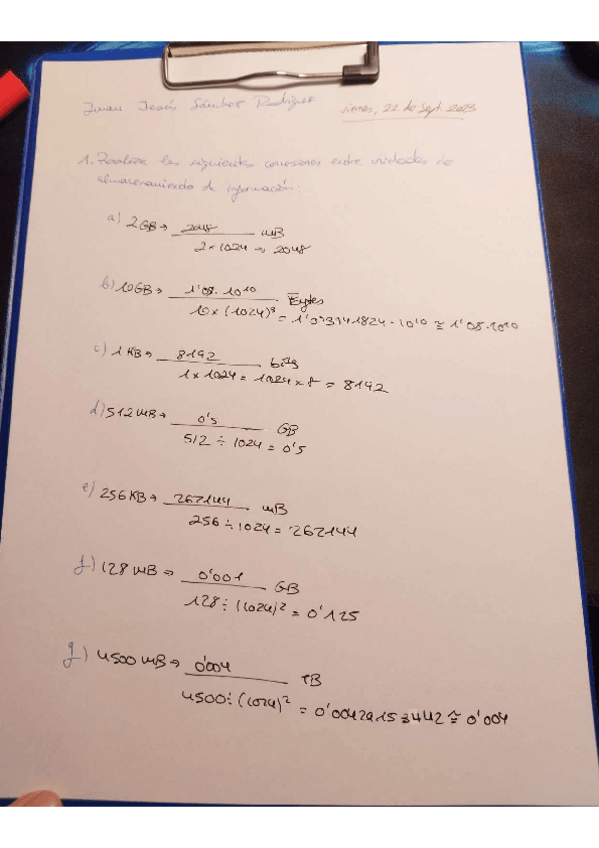 Juan Jesús Sánchez Rodríguez
viernes, 22 de Sept. 2023
1. Realiza las siguientes conversiones entre unidades de
almacenamiento de información:
a) 2GB → 2048 MB
2 x 1024 → 2048
b) 10GB → 1'08·10¹⁰ Bytes
10 x (1024)³ = 1'073741824·10¹⁰ ≅ 1'08·10¹⁰
c) 1 KB → 8192 bits
1 x 1024 = 1024 x 8 = 8192
d) 512 MB → 0'5 GB
512 ÷ 1024 = 0'5
e) 256 KB → 262144 MB
256 ÷ 1024 = 262144
f) 128 MB → 0'001 GB
128 ÷ (1024)² = 0'125
g) 4500 MB → 0'004 TB
4500 ÷ (1024)² = 0'00429153442 ≅ 0'004